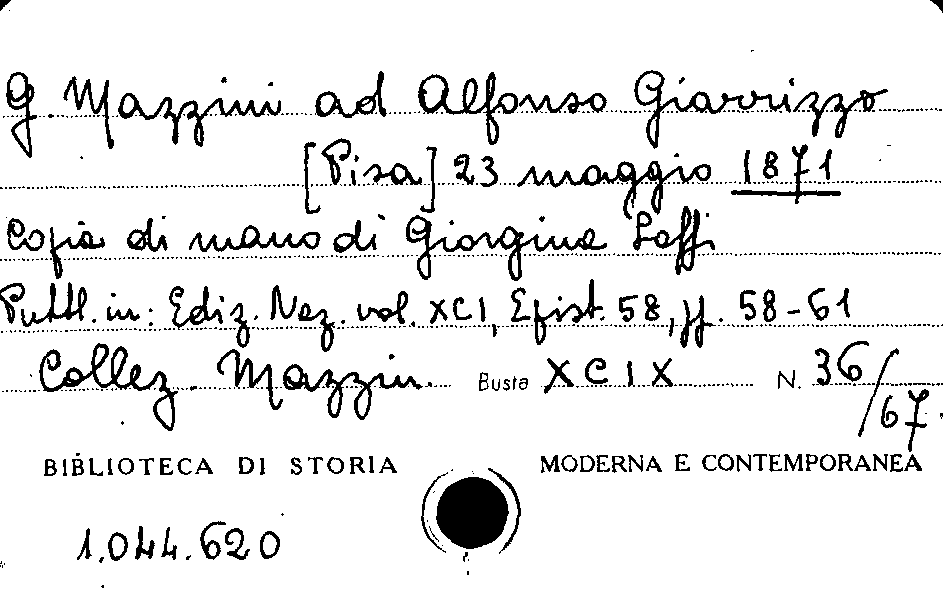 G. Mazzini ad Alfonso Giarrizzo
[Pisa] 23 maggio 1871
Copia di mano di Giorgina Saffi
Pubbl. in: Ediz. Naz. vol. XCI, Epist. 58, pp. 58-61
Collez. Mazzin. Busta XCIX N. 36/67.
BIBLIOTECA DI STORIA MODERNA E CONTEMPORANEA
1.044.620